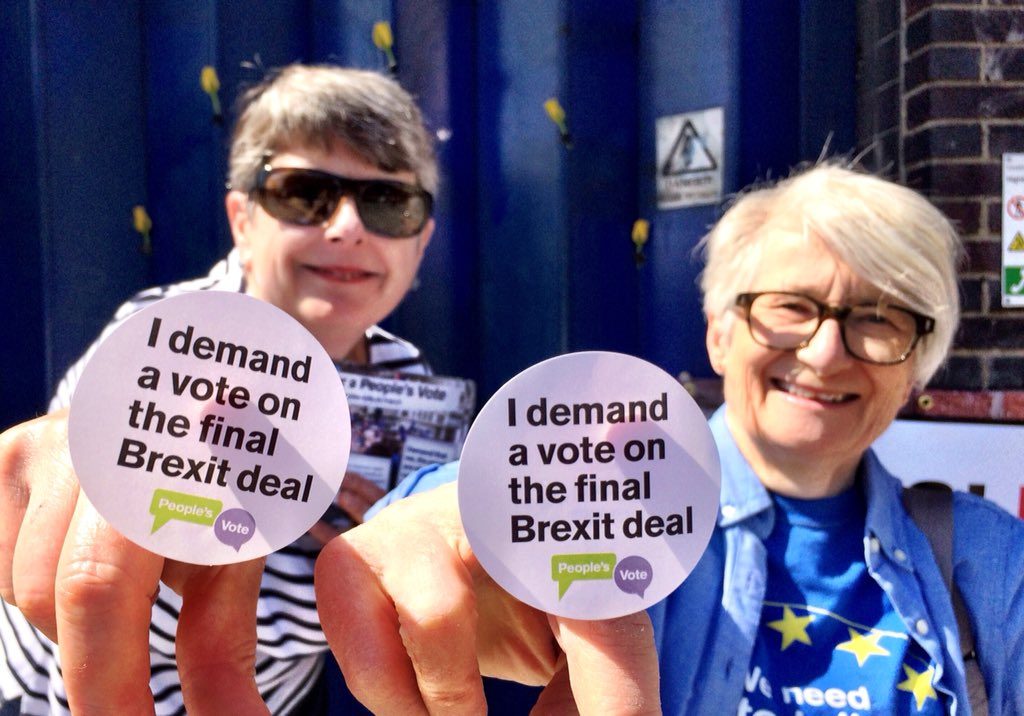 I demand
a vote on
the final
Brexit deal
People's
Vote
a People's Vote
I demand
a vote on
the final
Brexit deal
People's
Vote
need